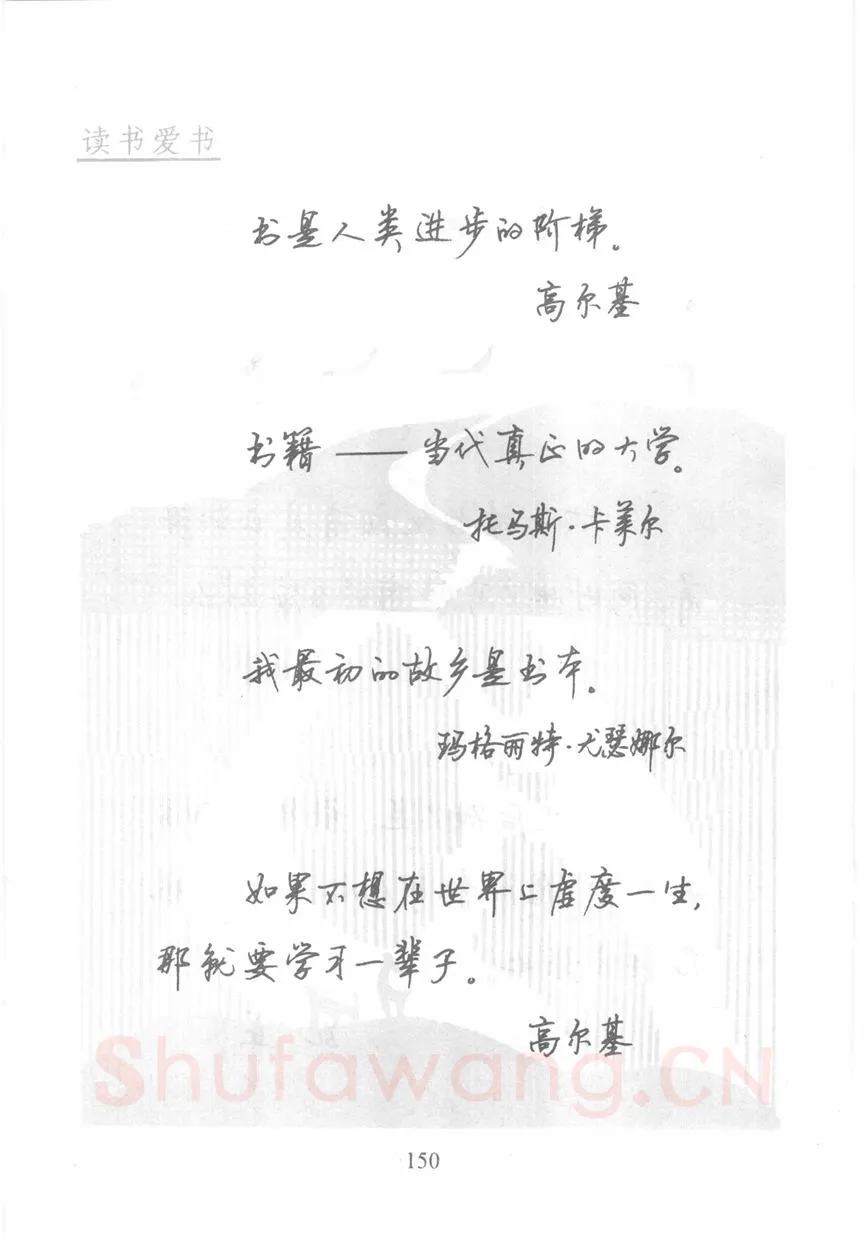 读书爱书
书是人类进步的阶梯。
高尔基
书籍——当代真正的大学。
托马斯·卡莱尔
我最初的故乡是书本。
玛格丽特·尤瑟娜尔
如果不想在世界上虚度一生,
那就要学习一辈子。
高尔基
Shufawang.CN
150